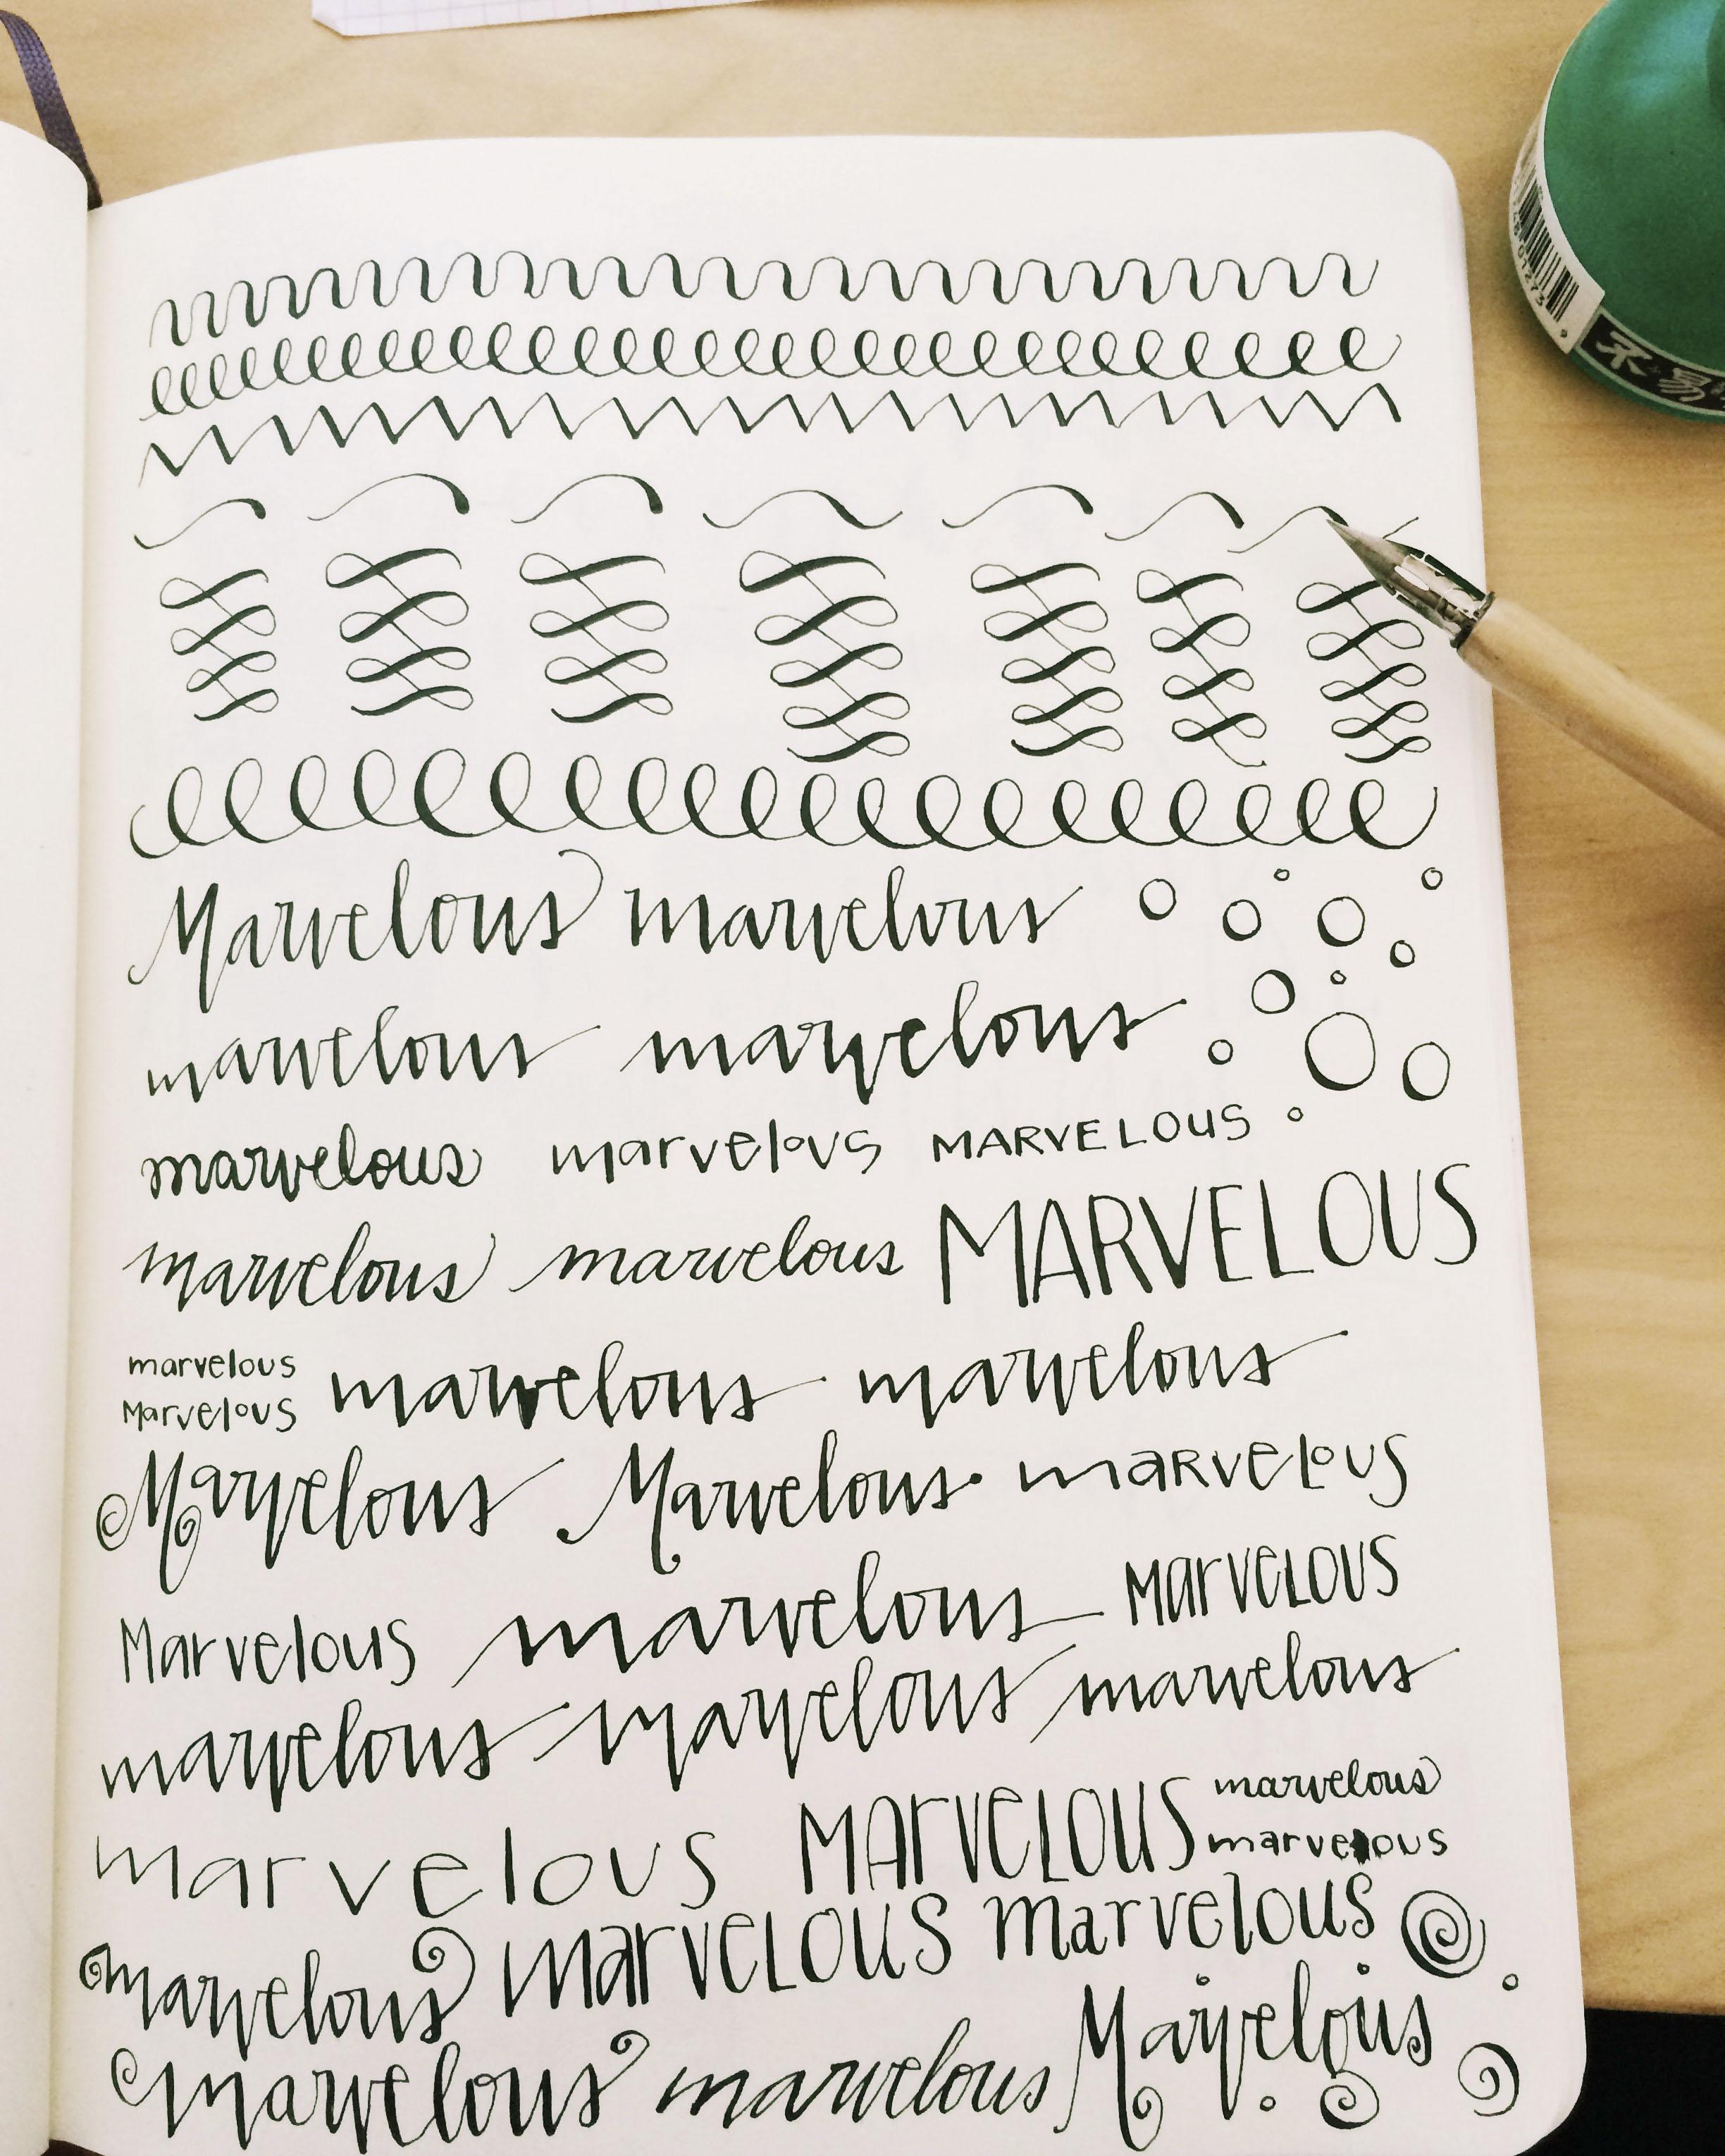 不易
Marvelous marvelous
marvelous marvelous
marvelous marvelous MARVELOUS
marvelous marvelous MARVELOUS
marvelous
Marvelous marvelous marvelous
Marvelous Marvelous marvelous
Marvelous marvelous Marvelous
marvelous marvelous marvelous
marvelous
marvelous MArveLOUS marvelous
marvelous marveLOUS marvelous
marvelous marvelous Marvelous